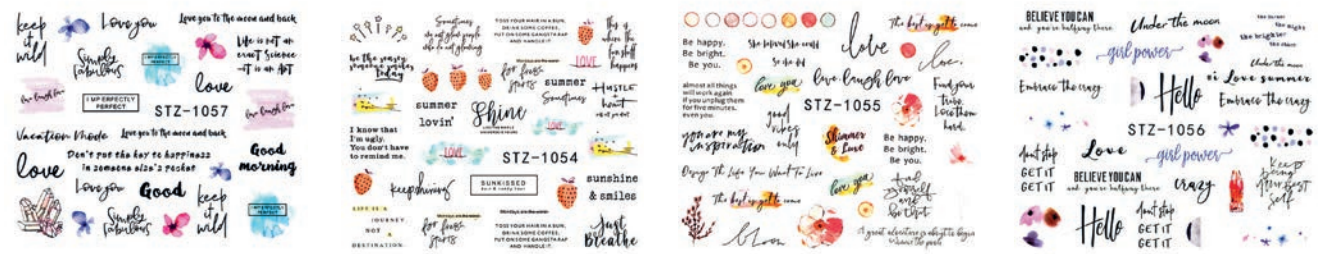 keep
it
wild
Love you
Love you to the moon and back
Simply
fabulous
IMPERFECTLY
PERFECT
Life is not an
exact Science
it is an ART
love
live laugh love
IMPERFECTLY
PERFECT
STZ-1057
live laugh love
Vacation mode
Love you to the moon and back
Good
morning
love
Don't put the key to happiness
in someone else's pocket
Love you
Good
keep
it
wild
Simply
fabulous
IMPERFECTLY
PERFECT
Sometimes
TOSS YOUR HAIR IN A BUN,
DRINK SOME COFFEE,
PUT ON SOME GANGSTA RAP
AND HANDLE IT.
this is
where the
fun stuff
happens
be the reason
someone smiles
today
for fox's
sake
LOVE
summer
lovin'
Shine
summer
Sometimes
HUSTLE
heart
I know that
I'm ugly.
You don't have
to remind me.
LOVE
LOVE
STZ-1054
keep shining
SUNKISSED
sunshine
& smiles
LIFE IS A
JOURNEY
NOT
A
DESTINATION
TOSS YOUR HAIR IN A BUN,
DRINK SOME COFFEE,
PUT ON SOME GANGSTA RAP
AND HANDLE IT.
Just
Breathe
The best is yet to come
Be happy.
Be bright.
Be you.
She believed she could
So she did
love
love.
almost all things
will work again
if you unplug them
for five minutes.
even you.
love you
love laugh love
STZ-1055
Find your
tribe.
Love them
hard.
you are my
inspiration
good
vibes
only
Shimmer
& Love
Be happy.
Be bright.
Be you.
Design The Life You Want To Live
love you
find
yourself
and
be that
The best is yet to come
bloom
A great adventure is about to begin
BELIEVE YOU CAN
and you're halfway there
Under the moon
the darker
the night
the brighter
the stars
girl power
Under the moon
Embrace the crazy
Hello
Love summer
Embrace the crazy
STZ-1056
don't stop
GET IT
GET IT
Love
girl power
BELIEVE YOU CAN
and you're halfway there
crazy
keep
being
your best
self
Hello
don't stop
GET IT
GET IT